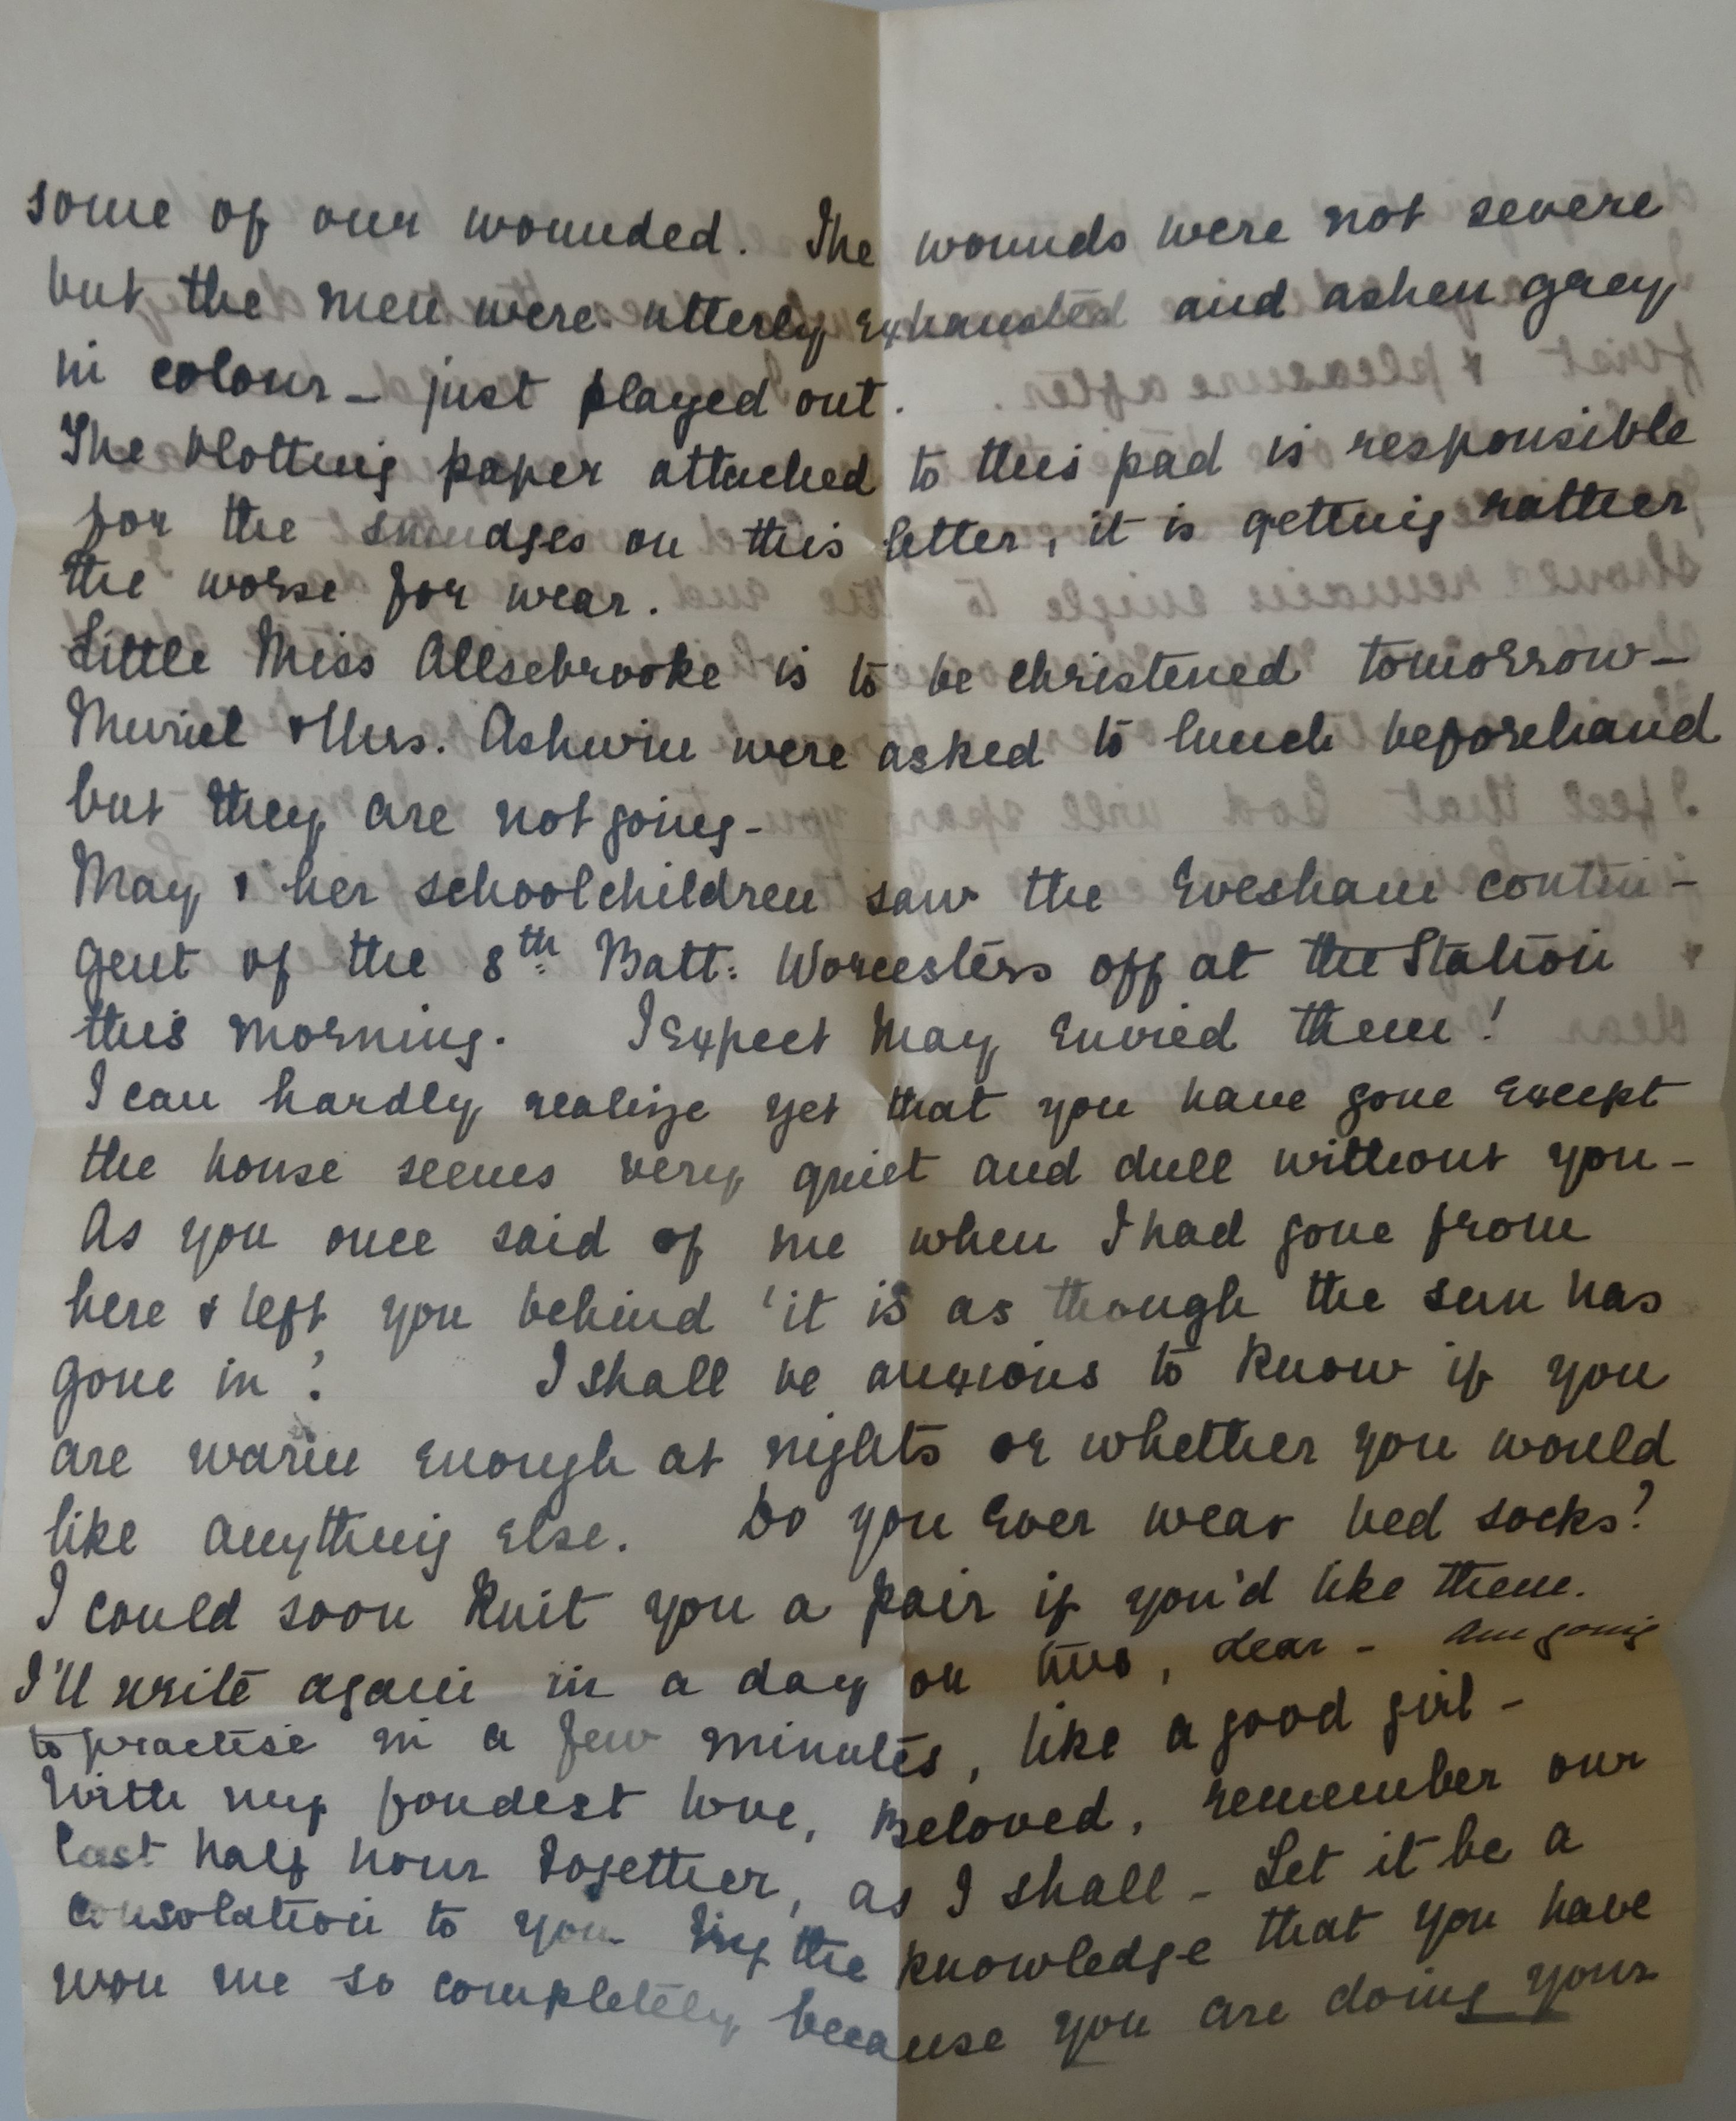 some of our wounded. The wounds were not severe
but the men were utterly exhausted and ashen grey
in colour – just played out.
The blotting paper attached to this pad is responsible
for the smudges on this letter, it is getting rather
the worse for wear.
Little Miss Allsebrooke is to be christened tomorrow –
Muriel & Mrs. Ashwin were asked to lunch beforehand
but they are not going –
May & her schoolchildren saw the Evesham contin-
gent of the 8th Batt: Worcesters off at the Station
this morning. I expect May envied them!
I can hardly realize yet that you have gone except
the house seems very quiet and dull without you –
As you once said of me when I had gone from
here & left you behind 'it is as though the sun has
gone in'. I shall be anxious to know if you
are warm enough at nights or whether you would
like anything else. Do you ever wear bed socks?
I could soon knit you a pair if you'd like them.
I'll write again in a day or two, dear – Am going
to practise in a few minutes, like a good girl –
With my fondest love, Beloved, remember our
last half hour together, as I shall – Let it be a
consolation to you the knowledge that you have
won me so completely because you are doing your